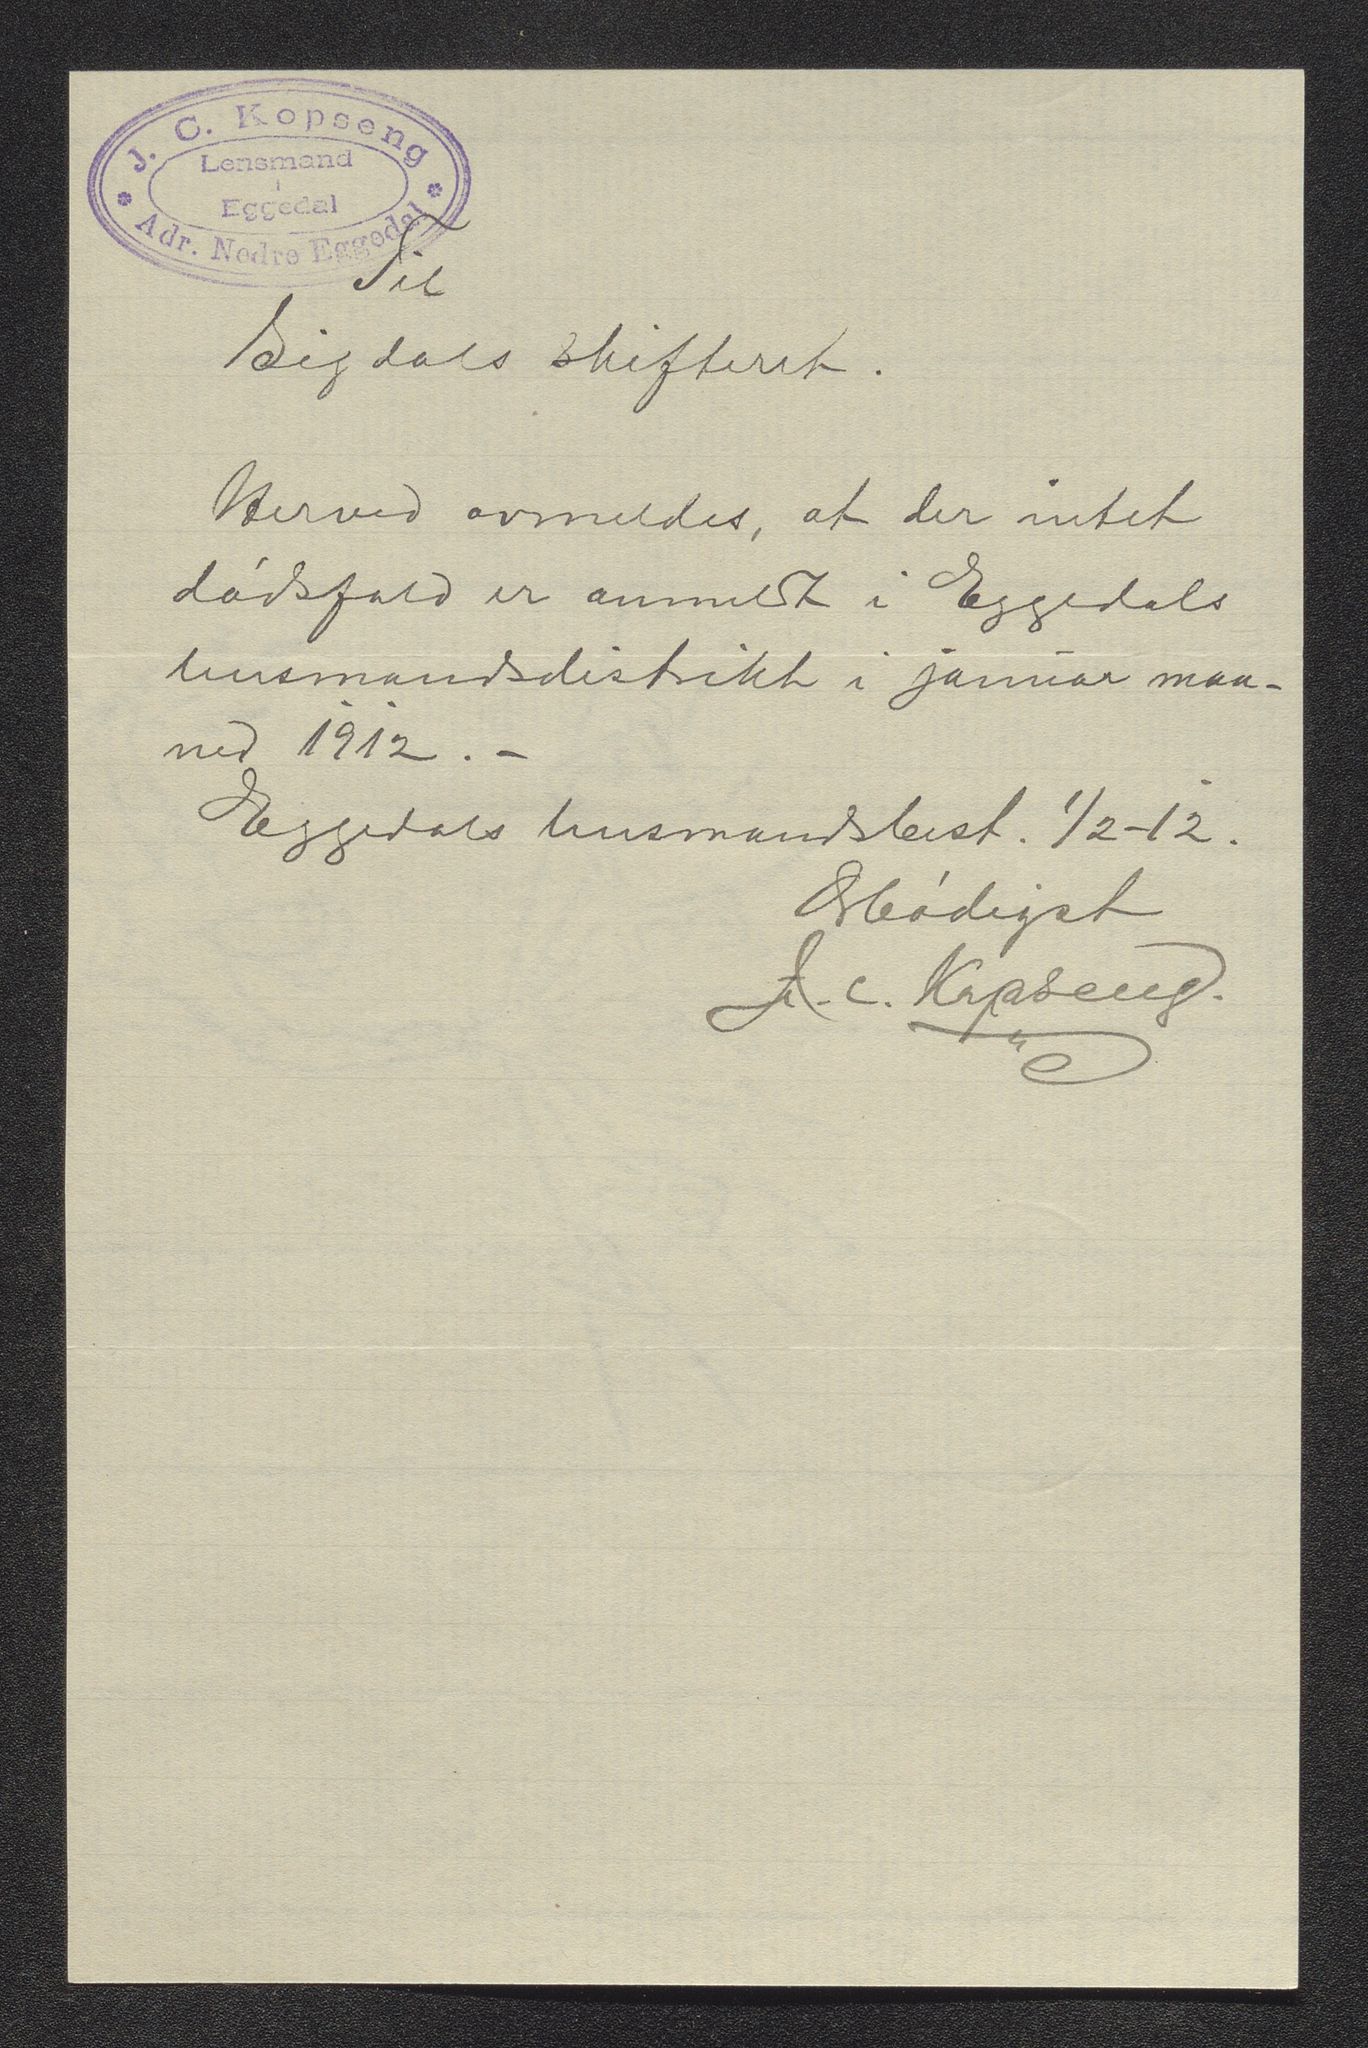 J. C. Kopseng
Lensmand
i
Eggedal
Adr. Nedre Eggedal
Til
Sigdals skifteret.
Herved avmeldes, at der intet
dødsfald er anmeldt i Eggedals
lensmandsdistrikt i januar maa-
ned 1912. -
Eggedals lensmandsbest. 1/2-12.
Ærbødigst
J. C. Kopseng.